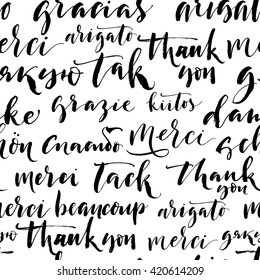 o gracias ar
erci arigato thank me
дякую tak you
ke grazie kiitos dan
ön Спасибо merci sch
merci Tack thank you
erci beaucoup arigato gr
o thank you merci дякую
shutterstock.com · 420614209